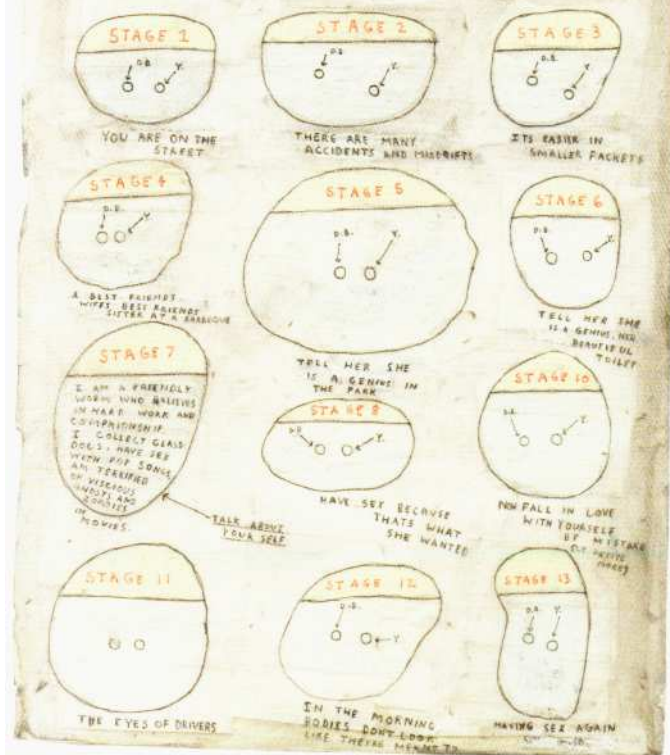 STAGE 1
D.B.
Y.
YOU ARE ON THE
STREET
STAGE 2
D.B.
Y.
THERE ARE MANY
ACCIDENTS AND MISDRIFTS
STAGE 3
D.B.
Y.
ITS EASIER IN
SMALLER PACKETS
STAGE 4
D.B.
Y.
A BEST FRIENDS
WIFES BEST FRIENDS
SISTER AT A BARBEQUE
STAGE 5
D.B.
Y.
TELL HER SHE
IS A GENIUS IN
THE PARK
STAGE 6
D.B.
Y.
TELL HER SHE
IS A GENIUS, HER
BEAUTIFUL
TOILET
STAGE 7
I AM A FRIENDLY
WORM WHO BELIEVES
IN HARD WORK AND
COMPANIONSHIP.
I COLLECT GLASS
DOGS, HAVE SEX
WITH POP SONGS,
AM TERRIFIED
OF VISCIOUS
GHOSTS AND
ZOMBIES
IN
MOVIES.
TALK ABOUT
YOUR SELF
STAGE 8
D.B.
Y.
HAVE SEX BECAUSE
THATS WHAT
SHE WANTED
STAGE 10
D.B.
Y.
NOW FALL IN LOVE
WITH YOURSELF
BY MISTAKE
STAGE 11
THE EYES OF DRIVERS
STAGE 12
D.B.
Y.
IN THE MORNING
BODIES DONT LOOK
LIKE THEYRE MEANT TO
STAGE 13
D.B.
Y.
HAVING SEX AGAIN